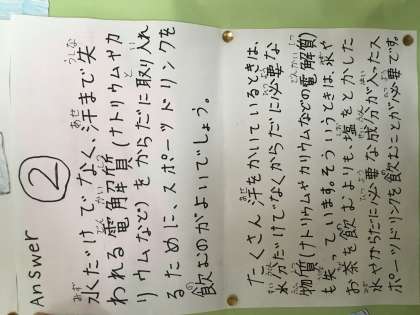 Answer ②
水だけでなく、汗まで失
われる電解質(ナトリウムやカ
リウムなど)をからだに取り入れ
るために、スポーツドリンクを
飲むのがよいでしょう。
たくさん汗をかいているときは、
水分だけでなくからだに必要な
物質(ナトリウムやカリウムなどの電解質)
も失っています。そういうときは、水や
お茶を飲むよりも、塩をとかした
水やからだに必要な成分が入ったス
ポーツドリンクを飲むことが必要です。